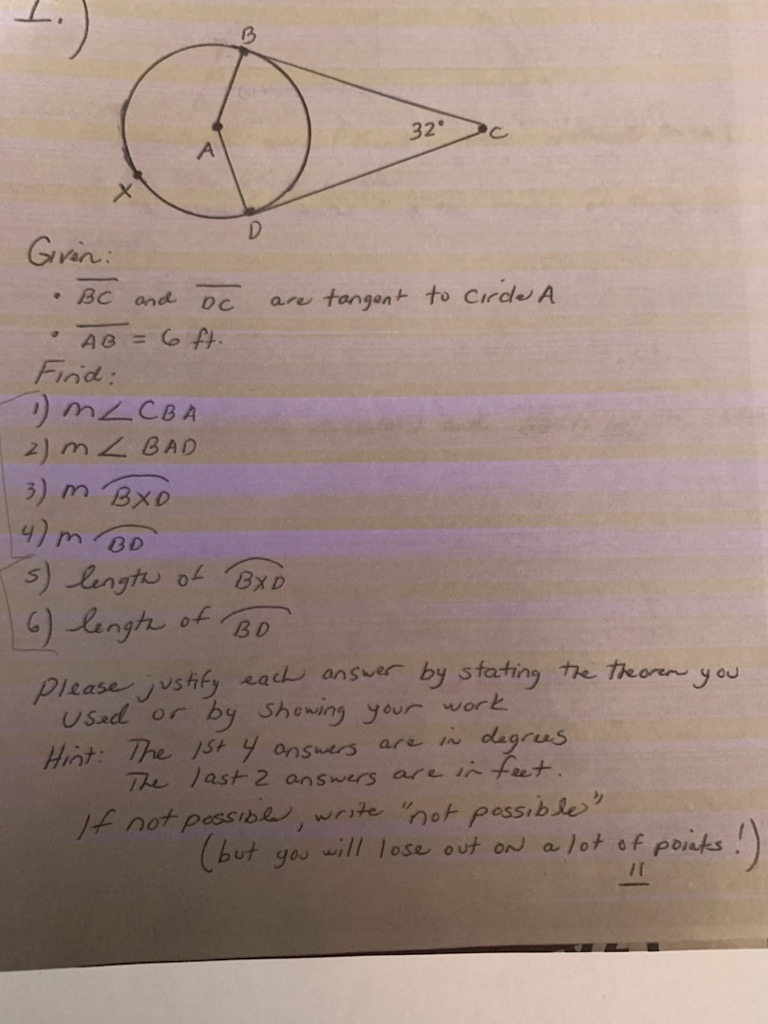 1.)
B
32°
C
A
X
D
Given:
• BC and DC are tangent to Circle A
• AB = 6 ft.
Find:
1) m∠CBA
2) m∠ BAD
3) m BXD
4) m BD
5) length of BXD
6) length of BD
Please justify each answer by stating the theorem you
used or by showing your work
Hint: The 1st 4 answers are in degrees
The last 2 answers are in feet.
If not possible, write "not possible"
(but you will lose out on a lot of points!)